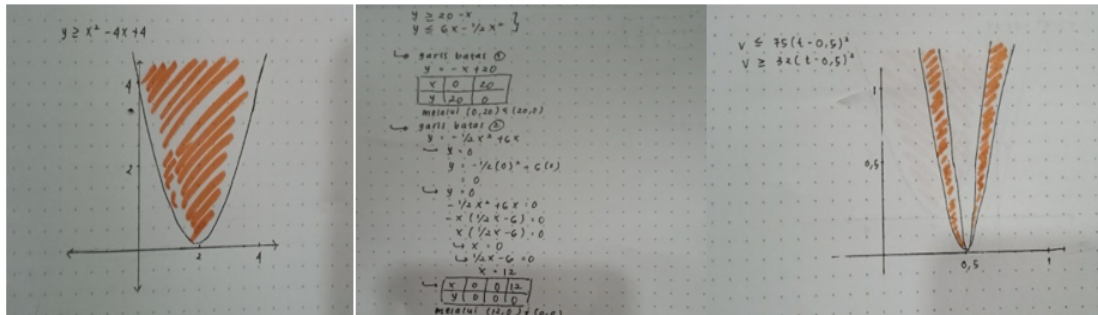 y ≥ x² - 4x + 4
4
2
2
4
y ≥ 20 - x
y ≤ 6x - 1/2x² }
↳ garis batas ①
y = -x + 20
x | 0 | 20
y | 20 | 0
melalui (0,20) & (20,0)
↳ garis batas ②
y = -1/2x² + 6x
↳ x = 0
y = -1/2(0)² + 6(0)
= 0
↳ y = 0
-1/2x² + 6x = 0
-x (1/2x - 6) = 0
x (1/2x - 6) = 0
↳ x = 0
↳ 1/2x - 6 = 0
x = 12
↳ x | 0 | 0 | 12
y | 0 | 0 | 0
melalui (12,0) & (0,0)
v ≤ 75(t - 0,5)²
v ≥ 32(t - 0,5)²
1
0,5
0,5
1